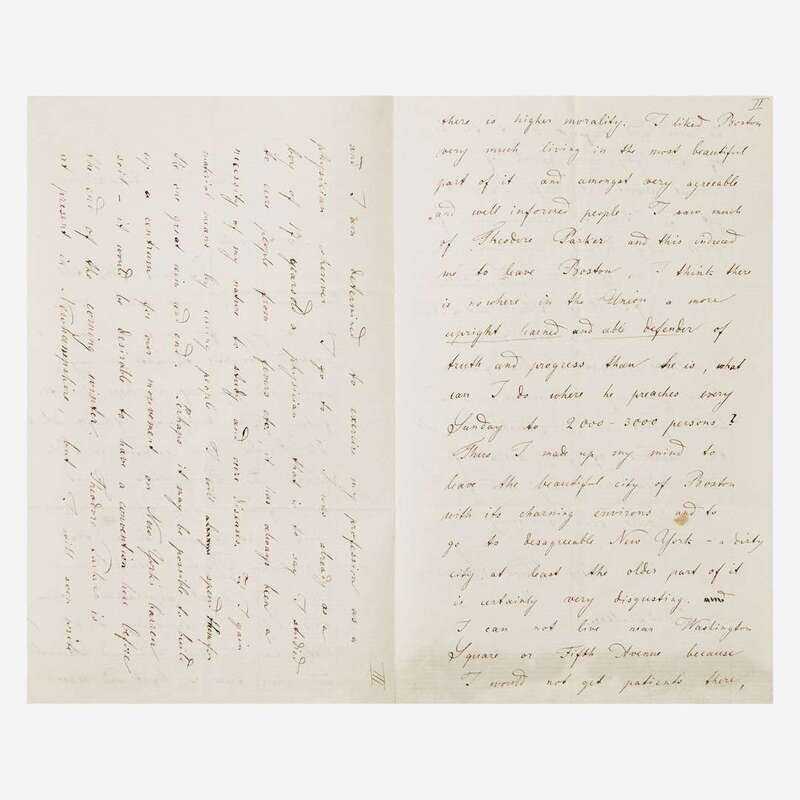 II
there is higher morality. I liked Boston
very much living in the most beautiful
part of it and amongst very agreable
and well informed people. I saw much
of Theodore Parker and this induced
me to leave Boston. I think there
is nowhere in the Union a more
upright learned and able defender of
truth and progress than he is, what
can I do where he preaches every
Sunday to 2000-3000 persons?
Thus I made up my mind to
leave the beautiful city of Boston
with its charming environs and to
go to desagreeable New York - a dirty
city, at least the older part of it
is certainly very disgusting. and
I can not live near Washington
Square or Fifth Avenue because
I would not get patients there,
III
and I am determined to exercise my profession as a
physician wherever I go to. I was already as a
boy of 13 years old a physician that is to say I studied
to cure people from fevers etc, it has always been a
necessity of my nature to study and cure disease. If I gain
material means by curing people I will spend them for
the one great aim and end. Perhaps it may be possible to build
up a centrum for our movement on New York's barren
soil - it would be desirable to have a convention here before
the end of the coming winter. Theodore Parker is
at present in Newhampshire, but I will soon write